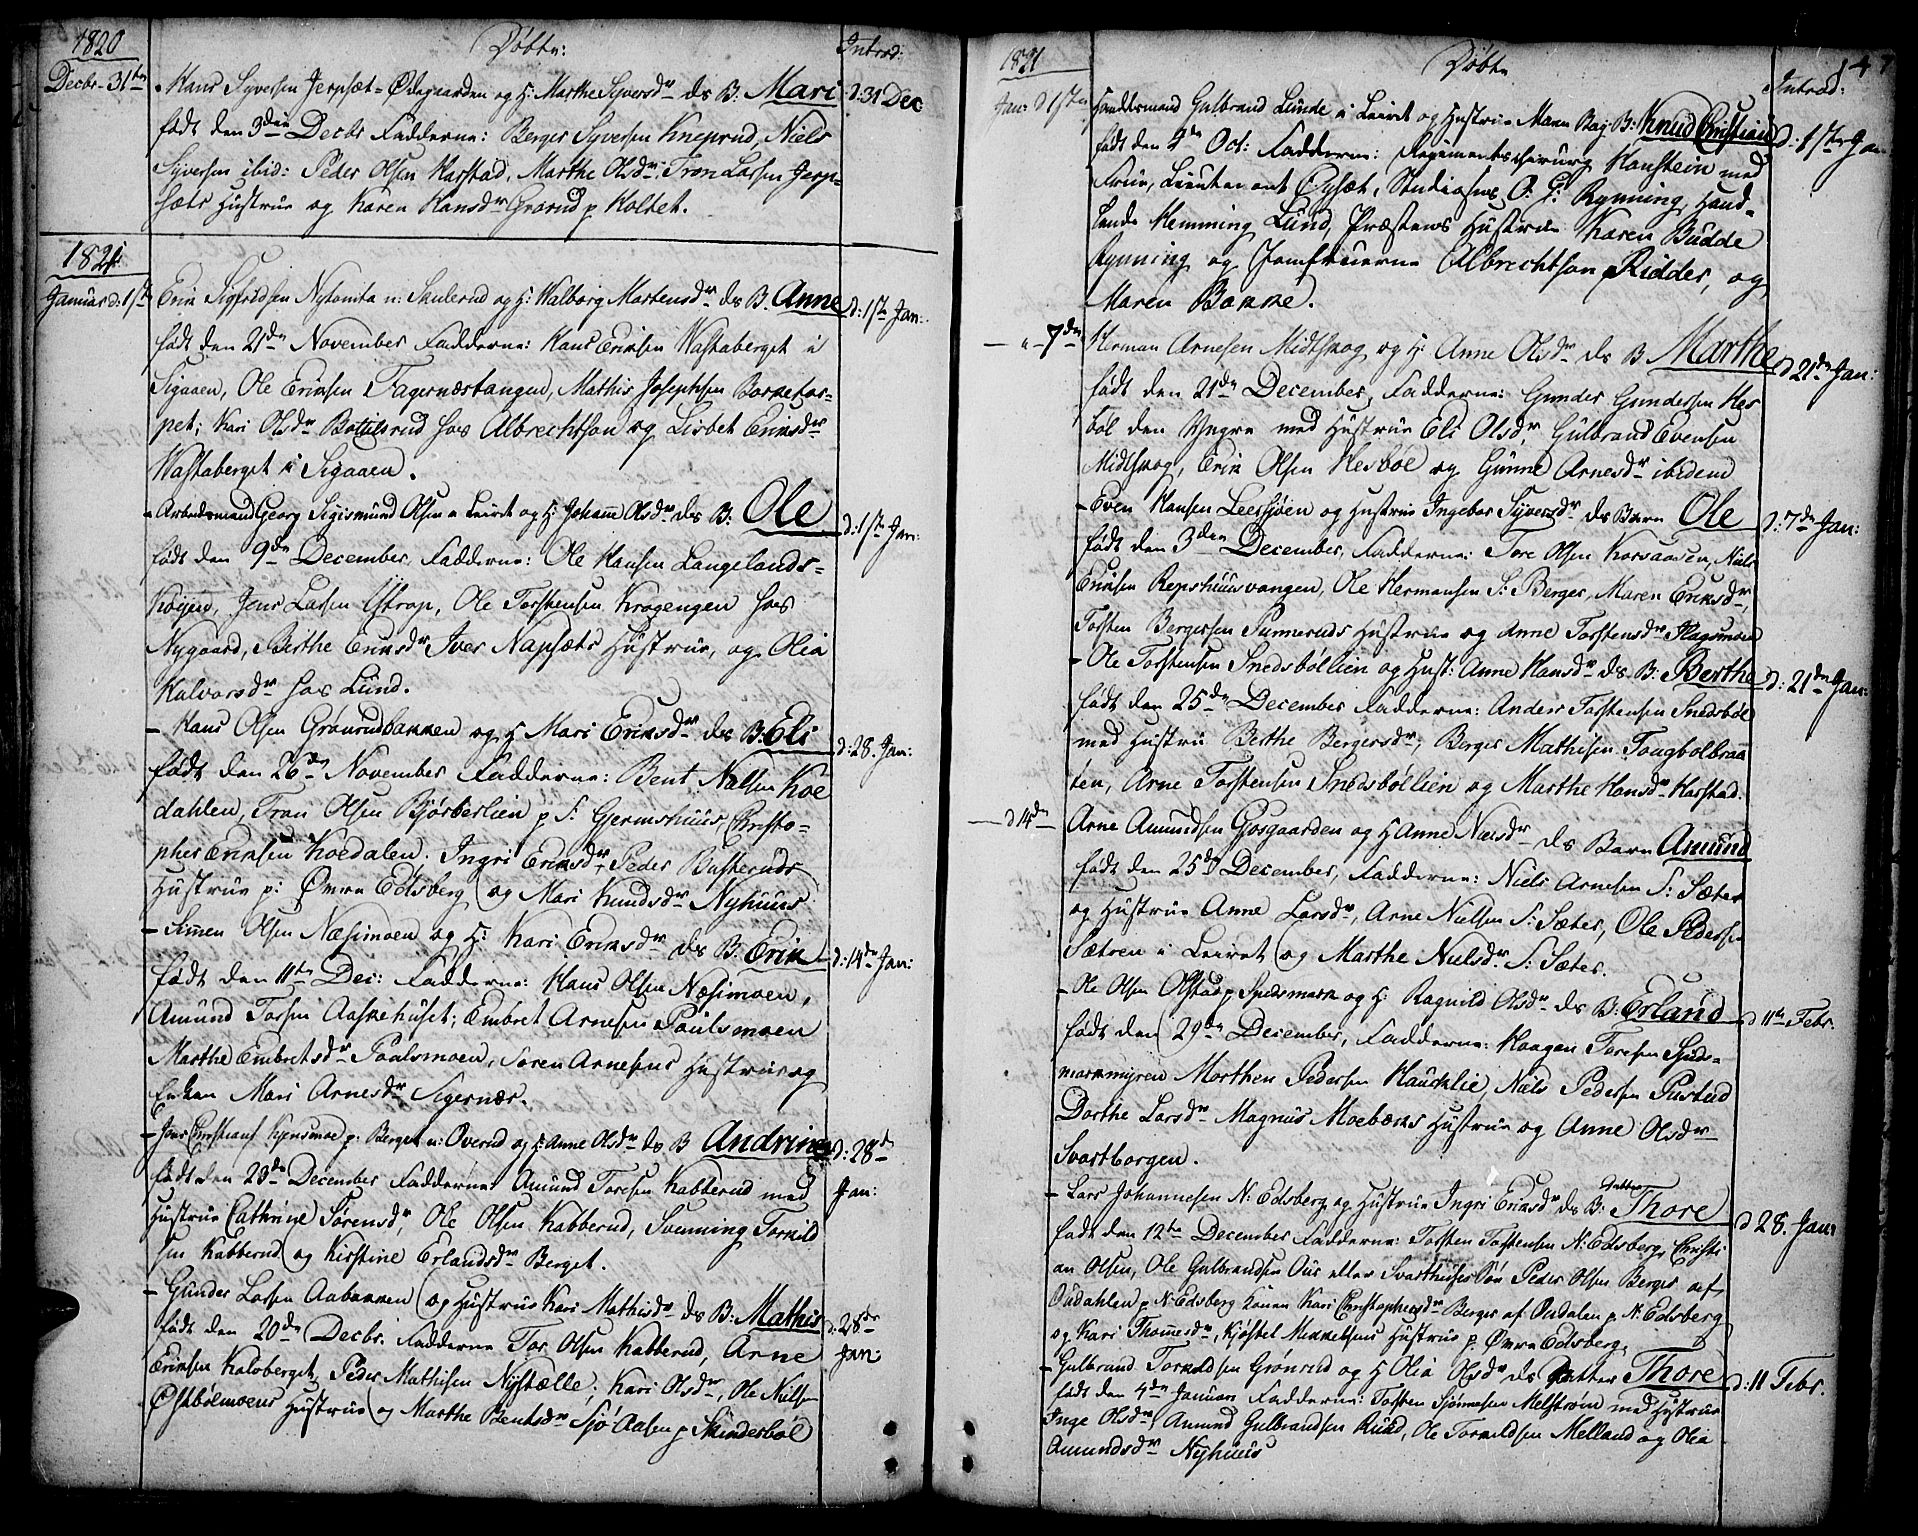 1820
Døbte:
Introd:
Decbr 31te
Hans Syversen Jerpset-Ødegaarden og H: Marthe Syversdr ds B: Mari
d: 31 Dec
født den 3die Decbr Fadderne: Berger Syversen Kneprud, Niels
Syversen ibid: Peder Olsen Harstad, Marthe Olsdr Tron Larsen Jerp-
sets Hustrue og Karen Hansdr Grarud p Holtet.
1821
Januar d: 1ste
Erik Sigfridsen Nytomta u: Saulerud og H: Walborg Mortensdr ds B. Anne
d: 1ste Jan:
født den 21de November Fadderne: Hans Eriksen Wastaberget i
Sigaaen, Ole Eriksen Tagernæstangen, Mathis Josephsen Borketor-
pet, Kari Olsdr Botilsrud hos Albrechtson og Lisbet Eriksdr
Wastaberget i Sigaaen.
- Arbeidsmand Georg Sigismund Olsen i Leiret og H: Johanne Olsdr ds B: Ole
d: 1ste Jan:
født den 9de December, Fadderne: Ole Hansen Langelands-
Jens Larsen Ustrop, Ole Torstensen Krogengen hos
Nygaard, Berthe Eriksdr Iver Napsets Hustrue, og Olia
Halvorsdr hos Lund.
- Hans Olsen Grønrudbakken og H Mari Eriksdr ds B: Eli
d: 28. Jan:
født den 26de November Fadderne: Bent Nielsen Koe
dahlen, Tron Olsen Bjørberlien p S: Gjermshuus, Christo-
pher Eriksen Koedalen, Ingri Eriksdr Peder Busteruds
Hustrue p: Øvre Edsberg og Mari Knudsdr Nyhuus
- Simen Olsen Næsimoen og H: Kari Eriksdr ds B. Erik
d: 14de Jan:
født den 11te Dec: Fadderne: Hans Olsen Næsimoen,
Amund Torsen Aaskehuset, Embret Arnesen Paulsmoen
Marthe Embretsdr Paalsmoen, Soren Arnesens Hustrue og
Enken Mari Arnesdr Sigernæs.
- Jens Christians Kjensmoe p: Berget u: Overud og H: Anne Olsdr ds B Andrine
d: 28de
Jan:
født den 23de December Fadderne Amund Toresen Kabberud med
Hustrue Cathrine Sørensdr, Ole Olsen Kabberud, Svenning Torkild
sen Kabberud og Kirstine Erlandsdr Berget.
- Gunder Larsen Aabakken og Hustrue Kari Mathisdr ds B: Mathis
d: 28de
Jan:
født den 20de Decbr. Fadderne Tor Olsen Kabberud, Arne
Eriksen Kalvberget, Peder Mathisen Nystælle, Kari Olsdr, Ole Nielsen
Østbølmoens Hustrue og Marthe Bentsdr Sjø-Aasen p Skinderbøl
147
1821
Døbte
Introd:
Jan: d 1ste
Handelsmand Gulbrand Lunde i Leiret og Hustrue Maren Bay B: Knud Christian
d: 1ste Jan.
født den 4de Oct: Fadderne: Regimentschirurg Hanstein med
Frue, Lieutenant Øyset, Studiosus O: G: Rynning, Hand-
lende Hemming Lund, Præstens Hustrue Karen Budde
Rynning og Jomfruerne Albrechtson p Ridder, og
Maren Bakke.
- " - 7de
Herman Arnesen Midtskog og H: Anne Olsdr ds B Marthe
d 21de Jan:
født den 21de December, Fadderne: Gunder Gundersen Hes
bøl den Yngre med Hustrue Eli Olsdr, Gulbrand Evensen
Midtskog, Erik Olsen Hesbøl og Gunne Arnesdr ibidem
- Even Hansen Leersjøen og Hustrue Ingebor Syversdr ds Barn Ole
d: 7de Jan:
født den 3den December, Fadderne: Tore Olsen Korsaasen, Niels
Eriksen Repshuusvangen, Ole Hermansen S: Berger, Maren Eriksdr,
Torsten Bergersen Sunneruds Hustrue og Anne Torstensdr Flagsmoen
- Ole Torstensen Snedsbøllien og Hust: Anne Hansdr ds B: Berthe
d: 21de Jan:
født den 25de December Fadderne: Anders Torstensen Snedsbøl
med Hustrue Berthe Bergersdr, Berger Mathisen Tougbolbraa
ten, Arne Torstensen Snedsbøllien og Marthe Hansdr Harstad.
- d 14de
Arne Amundsen Gosgaarden og H Anne Nielsdr ds Barn Amund
født den 25de December, Fadderne: Niels Arnesen S: Sæter
og Hustrue Anne Larsdr, Arne Nielsen S: Sæter, Ole Pedersen
Sætren i Leiret og Marthe Nielsdr S: Sæter.
- Ole Olsen Olstad p Spidsmark og H: Ragnild Olsdr ds B: Erland
d 11te Febr.
født den 29de December, Fadderne: Haagen Toresen Spids-
markmyren Morthen Pedersen Haucklie, Niels Pedersen Pustud
Dorthe Larsdr Magnus Moebæks Hustrue og Anne Olsdr
Svartborgen.
- Lars Johannesen N: Edsberg og Hustrue Ingri Eriksd ds B: Datter Thore
d 28. Jan:
født den 12te December Fadderne: Torsten Torstensen N: Edsberg, Christi
an Olsen, Ole Gulbrandsen Ous eller Svarthuses Søn Peder Olsen Berger af
Oudahlen p N: Edsberg Konen Kari Christophersdr Berger af Oudalen p N: Edsberg
og Kari Thomesdr, Kjøstel Mikkelsens Hustrue p. Øvre Edsberg,
- Gulbrand Torkildsen Grønrud og H Olia Olsdr ds Datter Thore
d: 11 Febr.
født den 4de Januari Fadderne: Torsten Sjønnesen Melstrøm med Hustrue
Inge Olsdr, Amund Gulbrandsen Rud, Ole Torkildsen Melland og Olia
Amundsdr Nyhuus